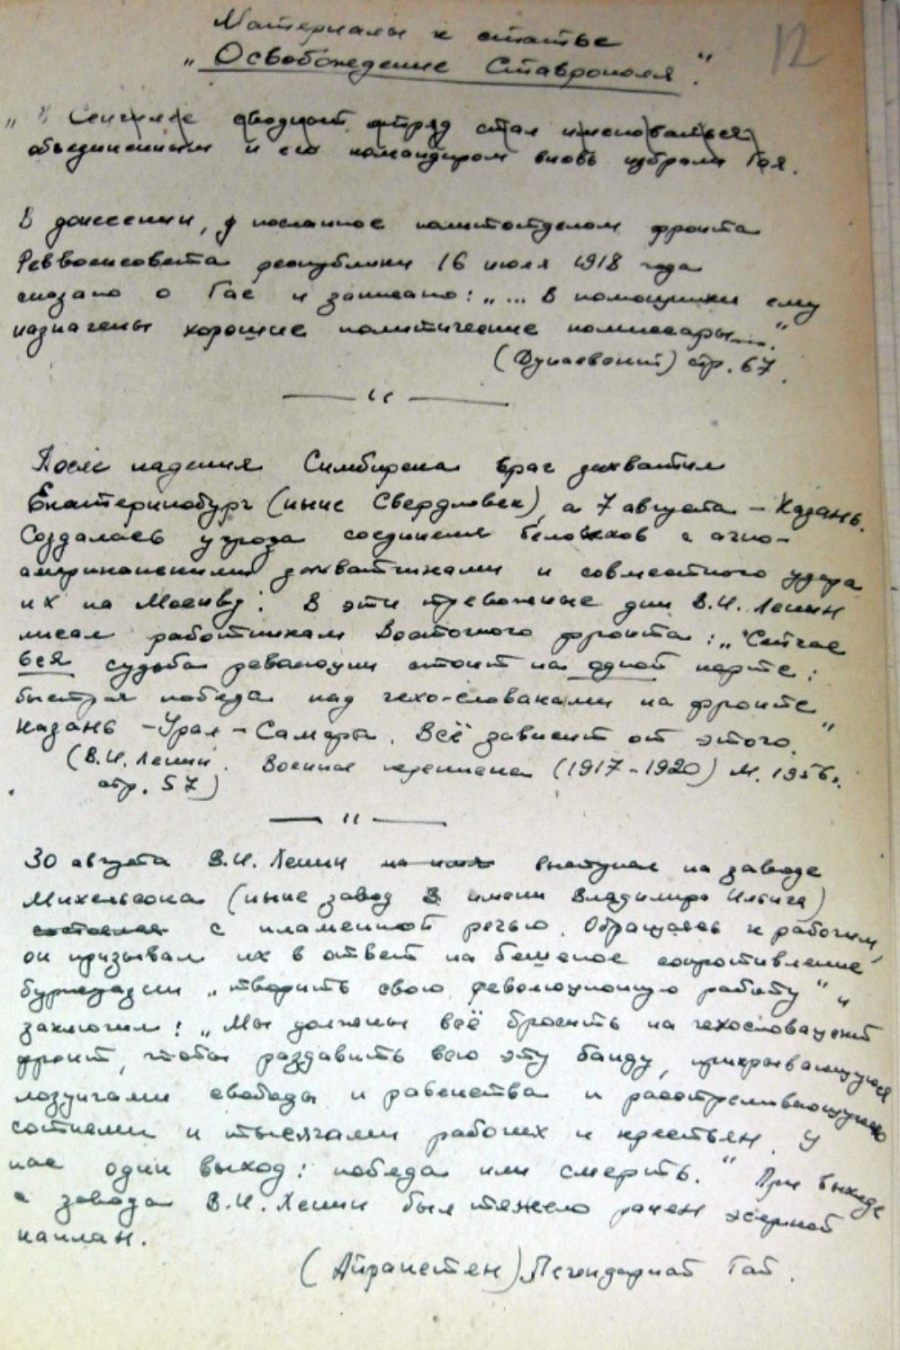 12
Материалы к статье
„Освобождение Ставрополя".
„В Сенгилее сводный отряд стал именоваться
объединенным и его командиром вновь избрали Гая.
В донесении, посланное политотделом фронта
Реввоенсовета республики 16 июля 1918 года
сказано о Гае и записано: „... В помощники ему
назначены хорошие политические комиссары...."
(Дунаевский) стр. 67.
— " —
После падения Симбирска враг захватил
Екатеринобург (ныне Свердловск), а 7 августа – Казань.
Создалась угроза соединения белочехов с англо-
американскими захватчиками и совместного удара
их на Москву. В эти тревожные дни В.И. Ленин
писал работникам Восточного фронта: „Сейчас
вся судьба революции стоит на одной карте:
быстрая победа над чехо-словаками на фронте
Казань – Урал – Самара. Всё зависит от этого."
(В.И. Ленин. Военная переписка (1917-1920) М. 1956.
стр. 57)
— " —
30 августа В.И. Ленин выступил на заводе
Михельсона (ныне завод имени Владимира Ильича)
с пламенной речью. Обращаясь к рабочим,
он призывал их в ответ на бешеное сопротивление
буржуазии „творить свою революционную работу" и
заключил: „Мы должны всё бросить на чехословацкий
фронт, чтобы раздавить всю эту банду, прикрывающуюся
лозунгами свободы и равенства и расстреливающую
сотнями и тысячами рабочих и крестьян. У
нас один выход: победа или смерть." При выходе
с завода В.И. Ленин был тяжело ранен эсеркой
каплан.
(Айрапетян) Легендарный Гай.